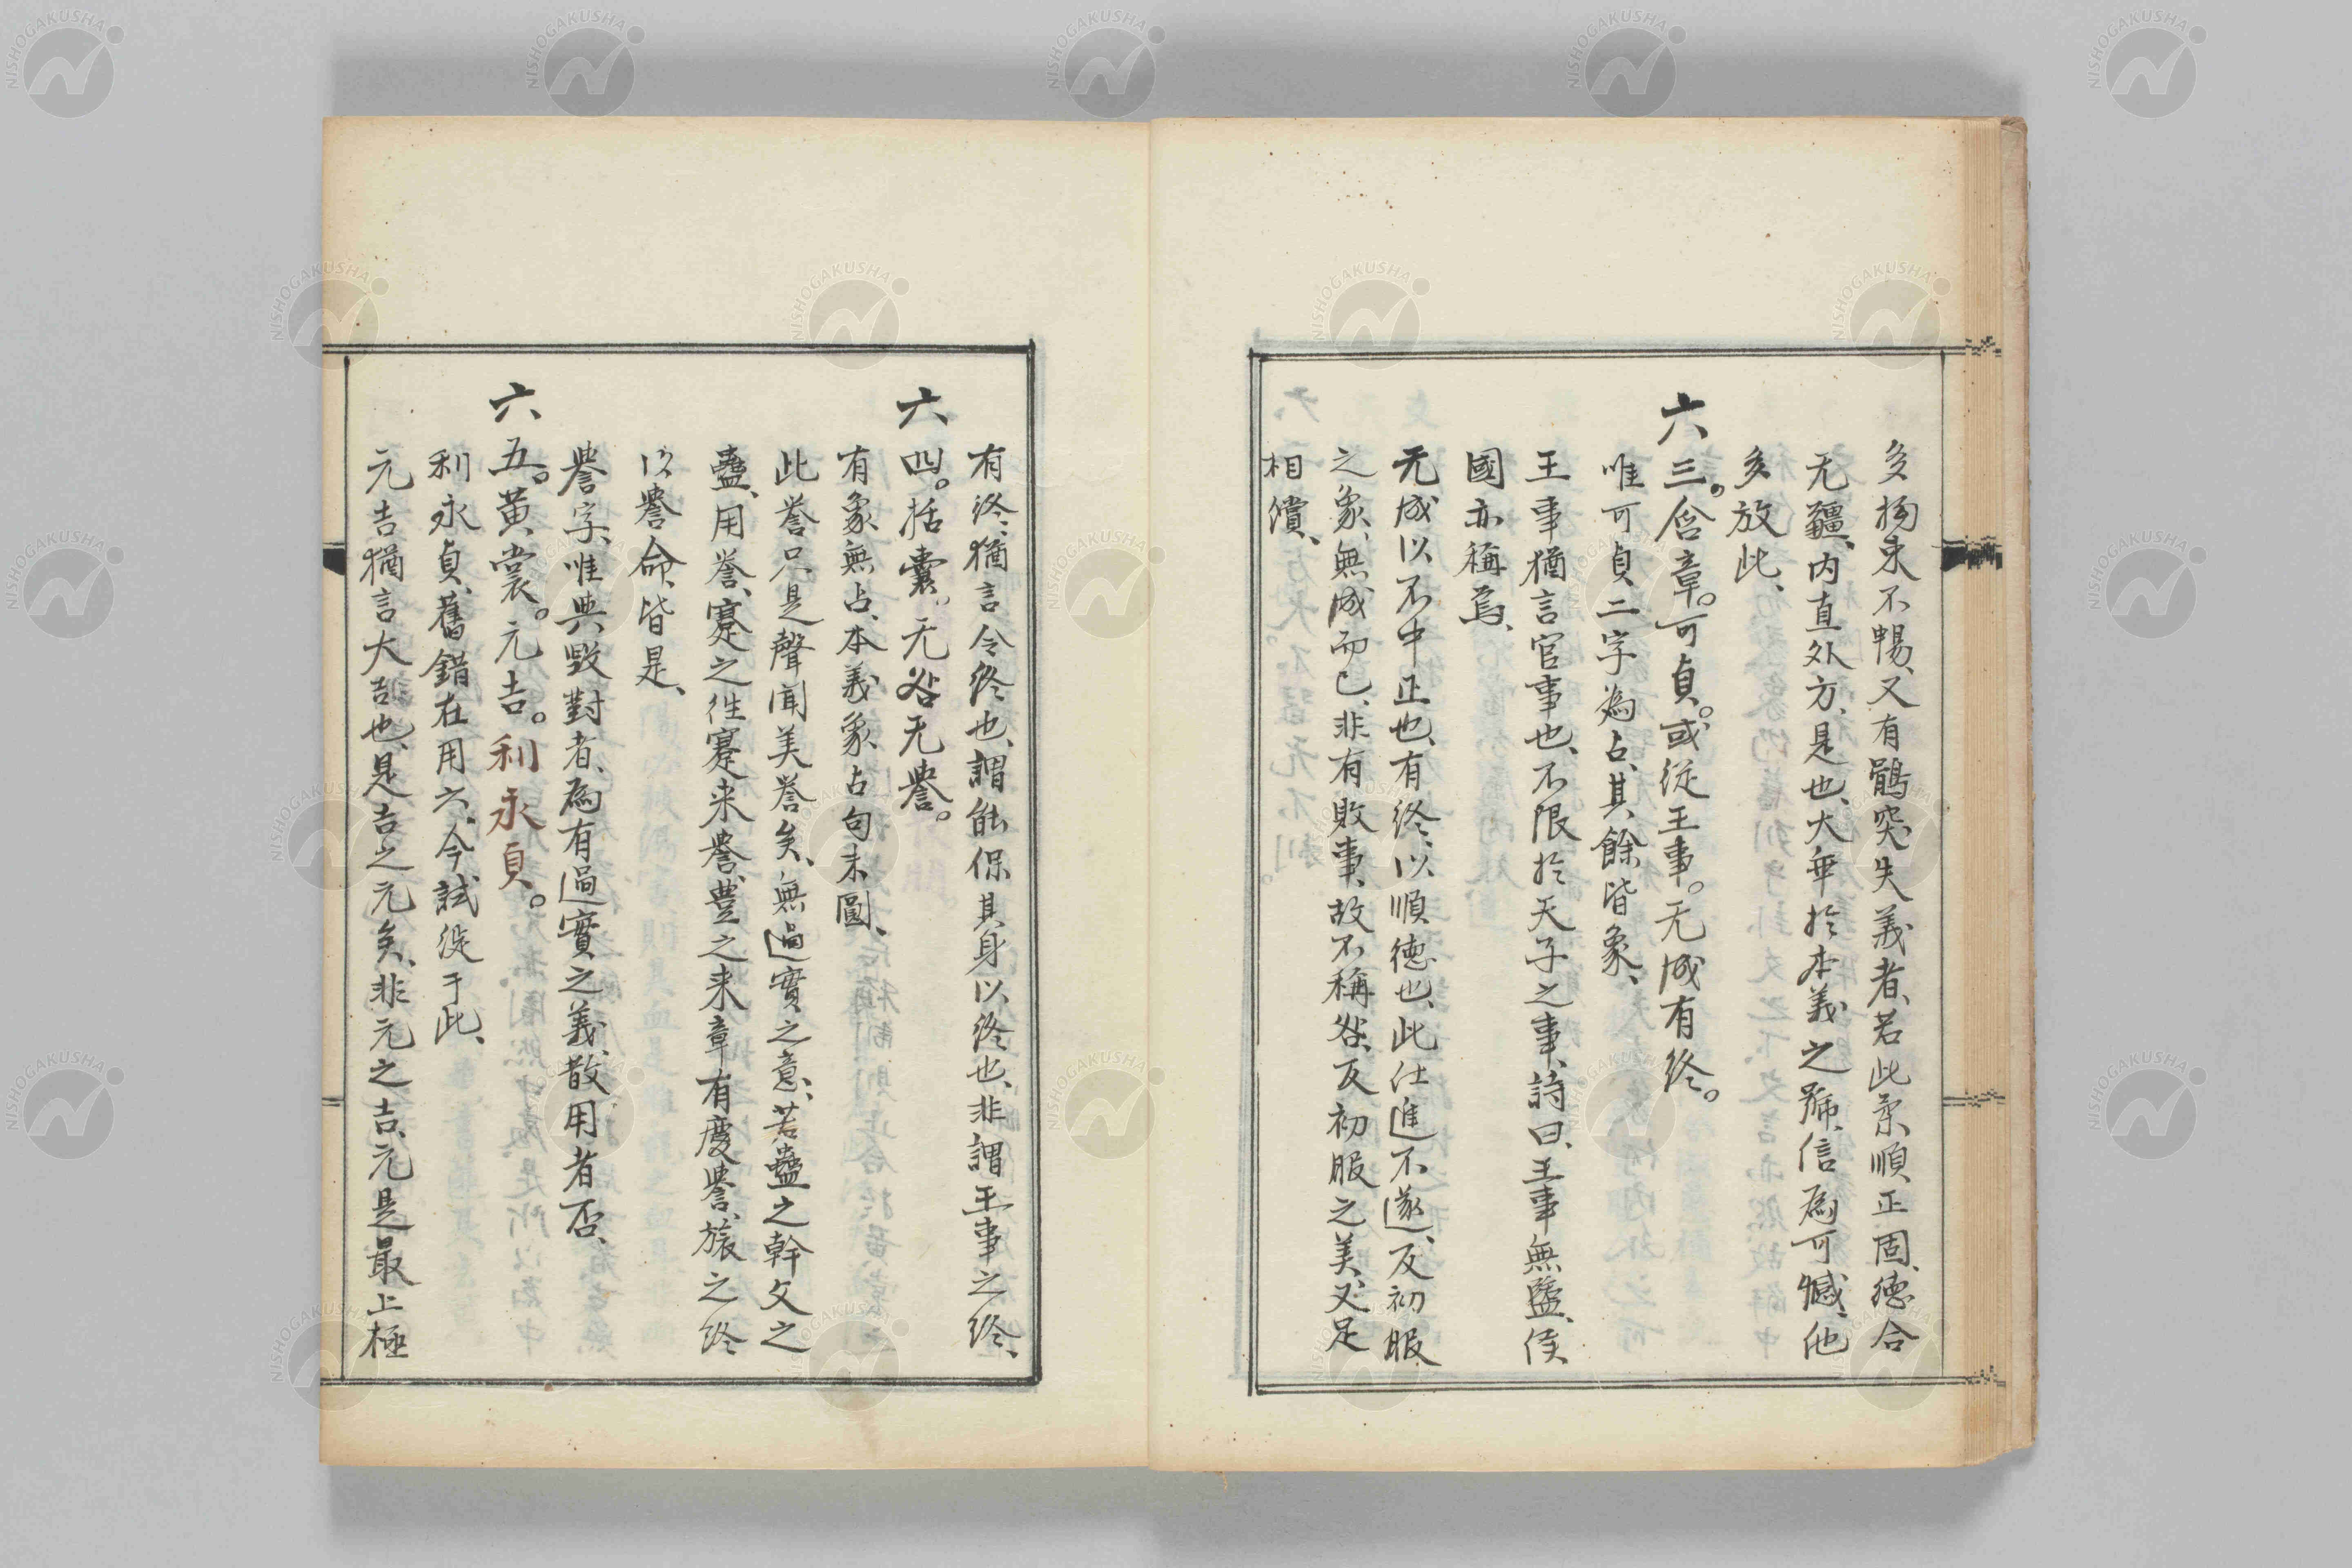 多拘束不暢、又有鶻突失義者、若此柔順正固、德合
无疆、内直外方、是也、大乖於本義之號、信為可憾、他
多放此、
六三。含章。可貞。或從王事。无成有終。
唯可貞二字為占、其餘皆象、
王事猶言官事也、不限於天子之事、詩曰、王事無盬、侯
國亦稱焉、
无成以不中正也、有終、以順德也、此仕進不遂、反初服
之象、無成而已、非有敗事、故不稱咎、反初服之美、又足
相償、
有終、猶言令終也、謂能保其身以終也、非謂王事之終、
六四。括囊。无咎无譽。
有象無占、本義象占句未圓、
此譽只是聲聞美譽矣、無過實之意、若蠱之幹父之
蠱、用譽、蹇之往蹇来譽、豊之来章有慶譽、旅之終
以譽命、皆是、
譽字、唯與毀對者、為有過實之義、散用者否、
六五。黄裳。元吉。利永貞。
利永貞、舊錯在用六、今試從于此、
元吉猶言大吉也、是吉之元矣、非元之吉、元是最上極